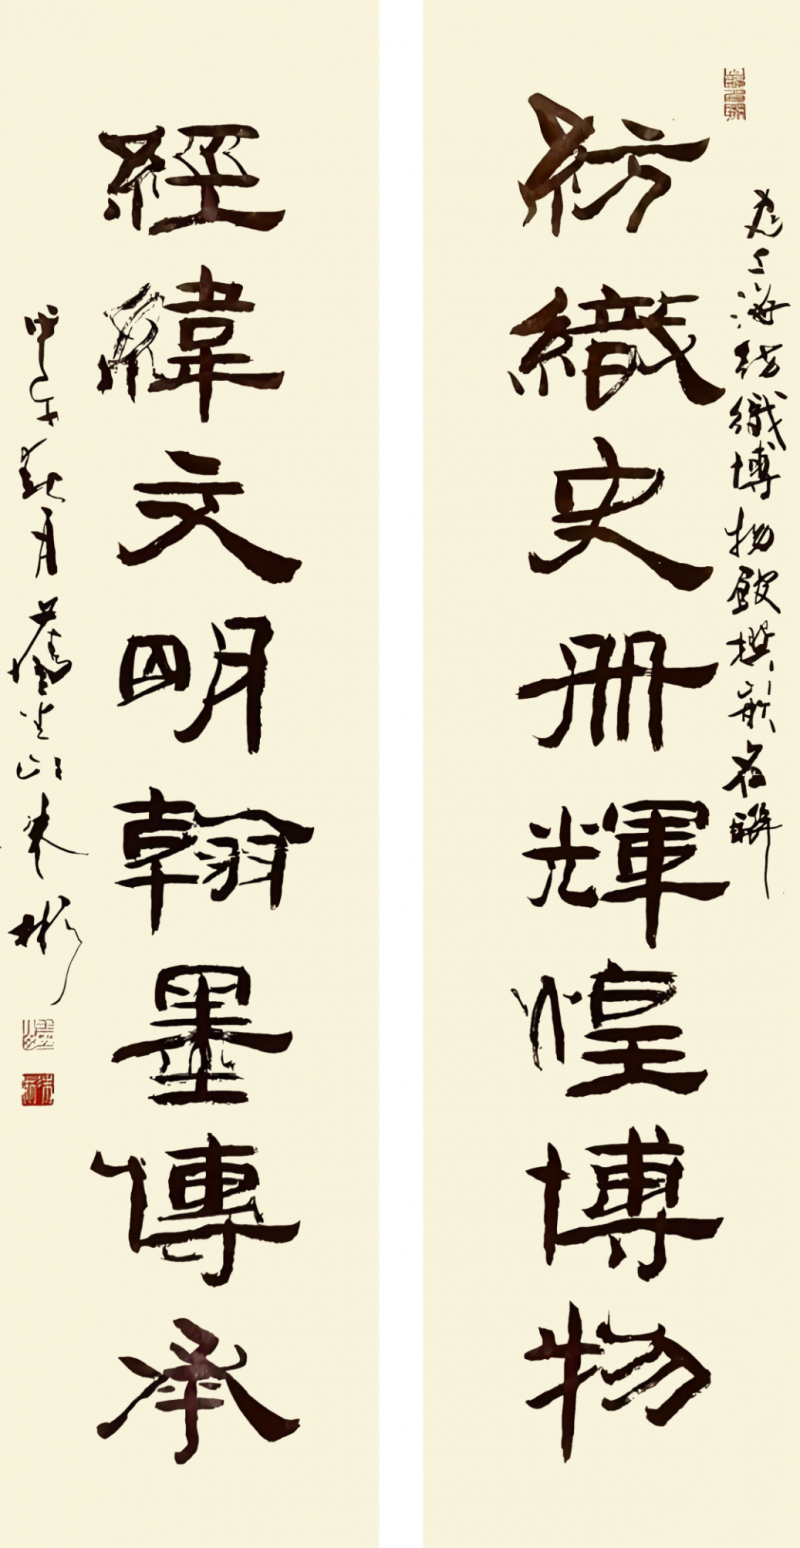 為上海紡織博物館撰嵌名聯
紡織史册輝煌博物
經緯文明翰墨傳承
甲午秋月
彬